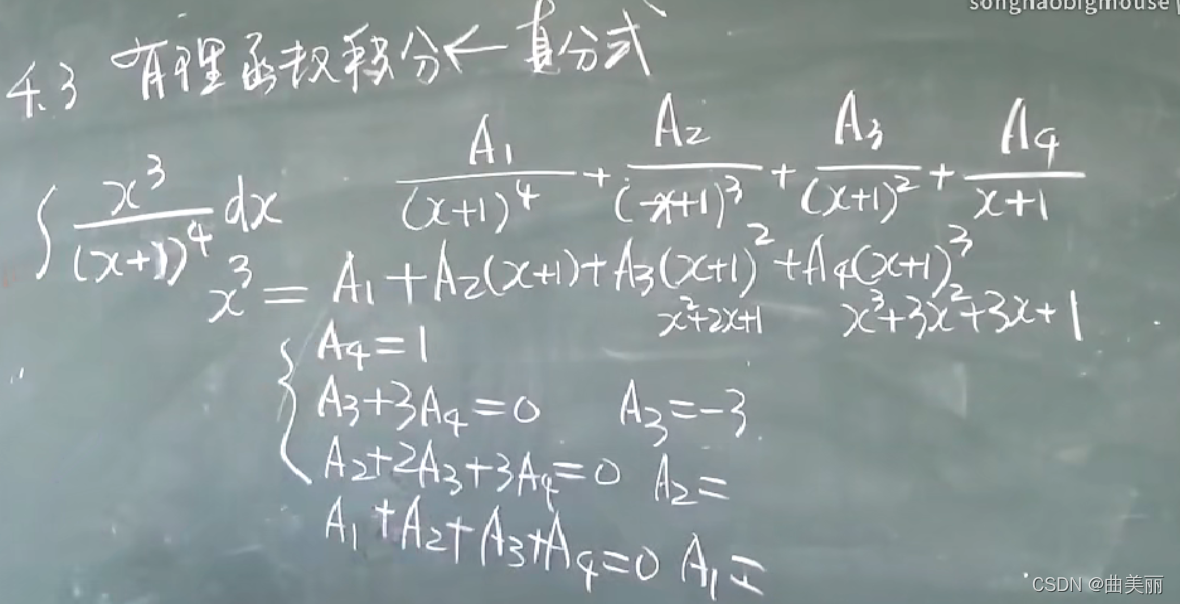 songhaobigmouse
4.3 有理函数积分←真分式
∫ x³/(x+1)⁴ dx    A₁/(x+1)⁴ + A₂/(x+1)³ + A₃/(x+1)² + A₄/(x+1)
x³ = A₁ + A₂(x+1) + A₃(x+1)² + A₄(x+1)³
x²+2x+1    x³+3x²+3x+1
A₄=1
A₃+3A₄=0    A₃=-3
A₂+2A₃+3A₄=0    A₂=
A₁+A₂+A₃+A₄=0    A₁=
CSDN @曲美丽